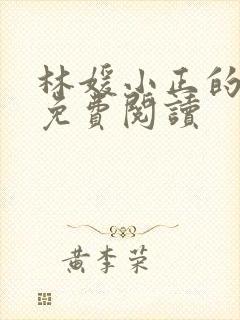 林媛小正的
免費閱讀
黄李荣